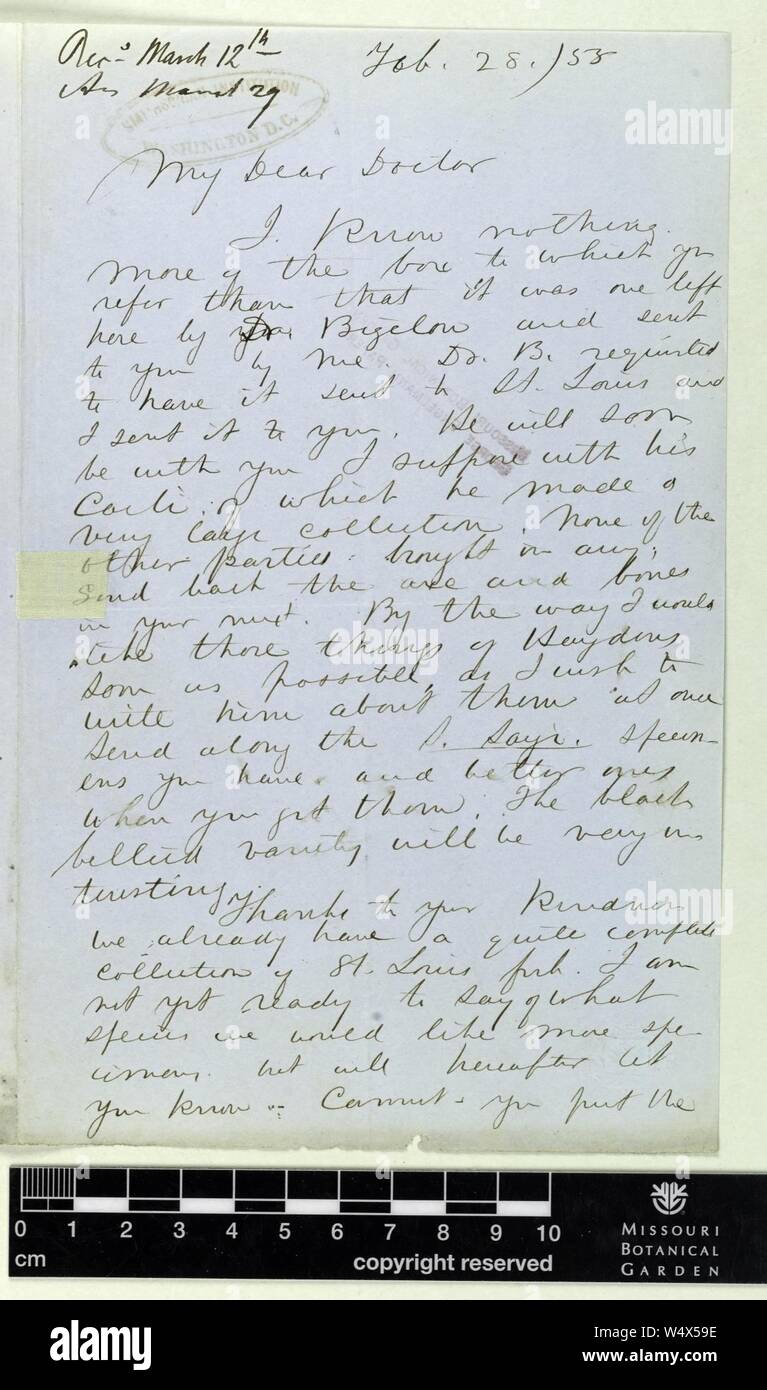 Rec.d March 12th
Feb. 28. /55
Ans March 29
SMITHSONIAN INSTITUTION
WASHINGTON D.C.
My Dear Doctor
I know nothing
more of the box to which yu
refer than that it was one left
here by Dr. Bigelow and sent
to you by me. Dr. B. requested
to have it sent to St. Louis and
I sent it to you. He will soon
be with you I suppose with his
Cacti, of which he made a
very large collection. None of the
other parties brought in any.
Send back the axe and bones
in your next. By the way I would
like those things of Haydens
soon as possible, as I wish to
write him about them at once
Send along the S. Sayi. specim-
ens you have and better ones
when you get them. The black
bellied variety will be very in
teresting.
Thanks to your kindness
we already have a quite complete
collection of St. Louis fish. I am
not yet ready to say of what
species we would like more spe-
cimens but will hereafter let
you know. Cannot you put the
0 1 2 3 4 5 6 7 8 9 10
cm
copyright reserved
MISSOURI
BOTANICAL
GARDEN
alamy
alamy
alamy
alamy
Image ID: W4X59E
www.alamy.com